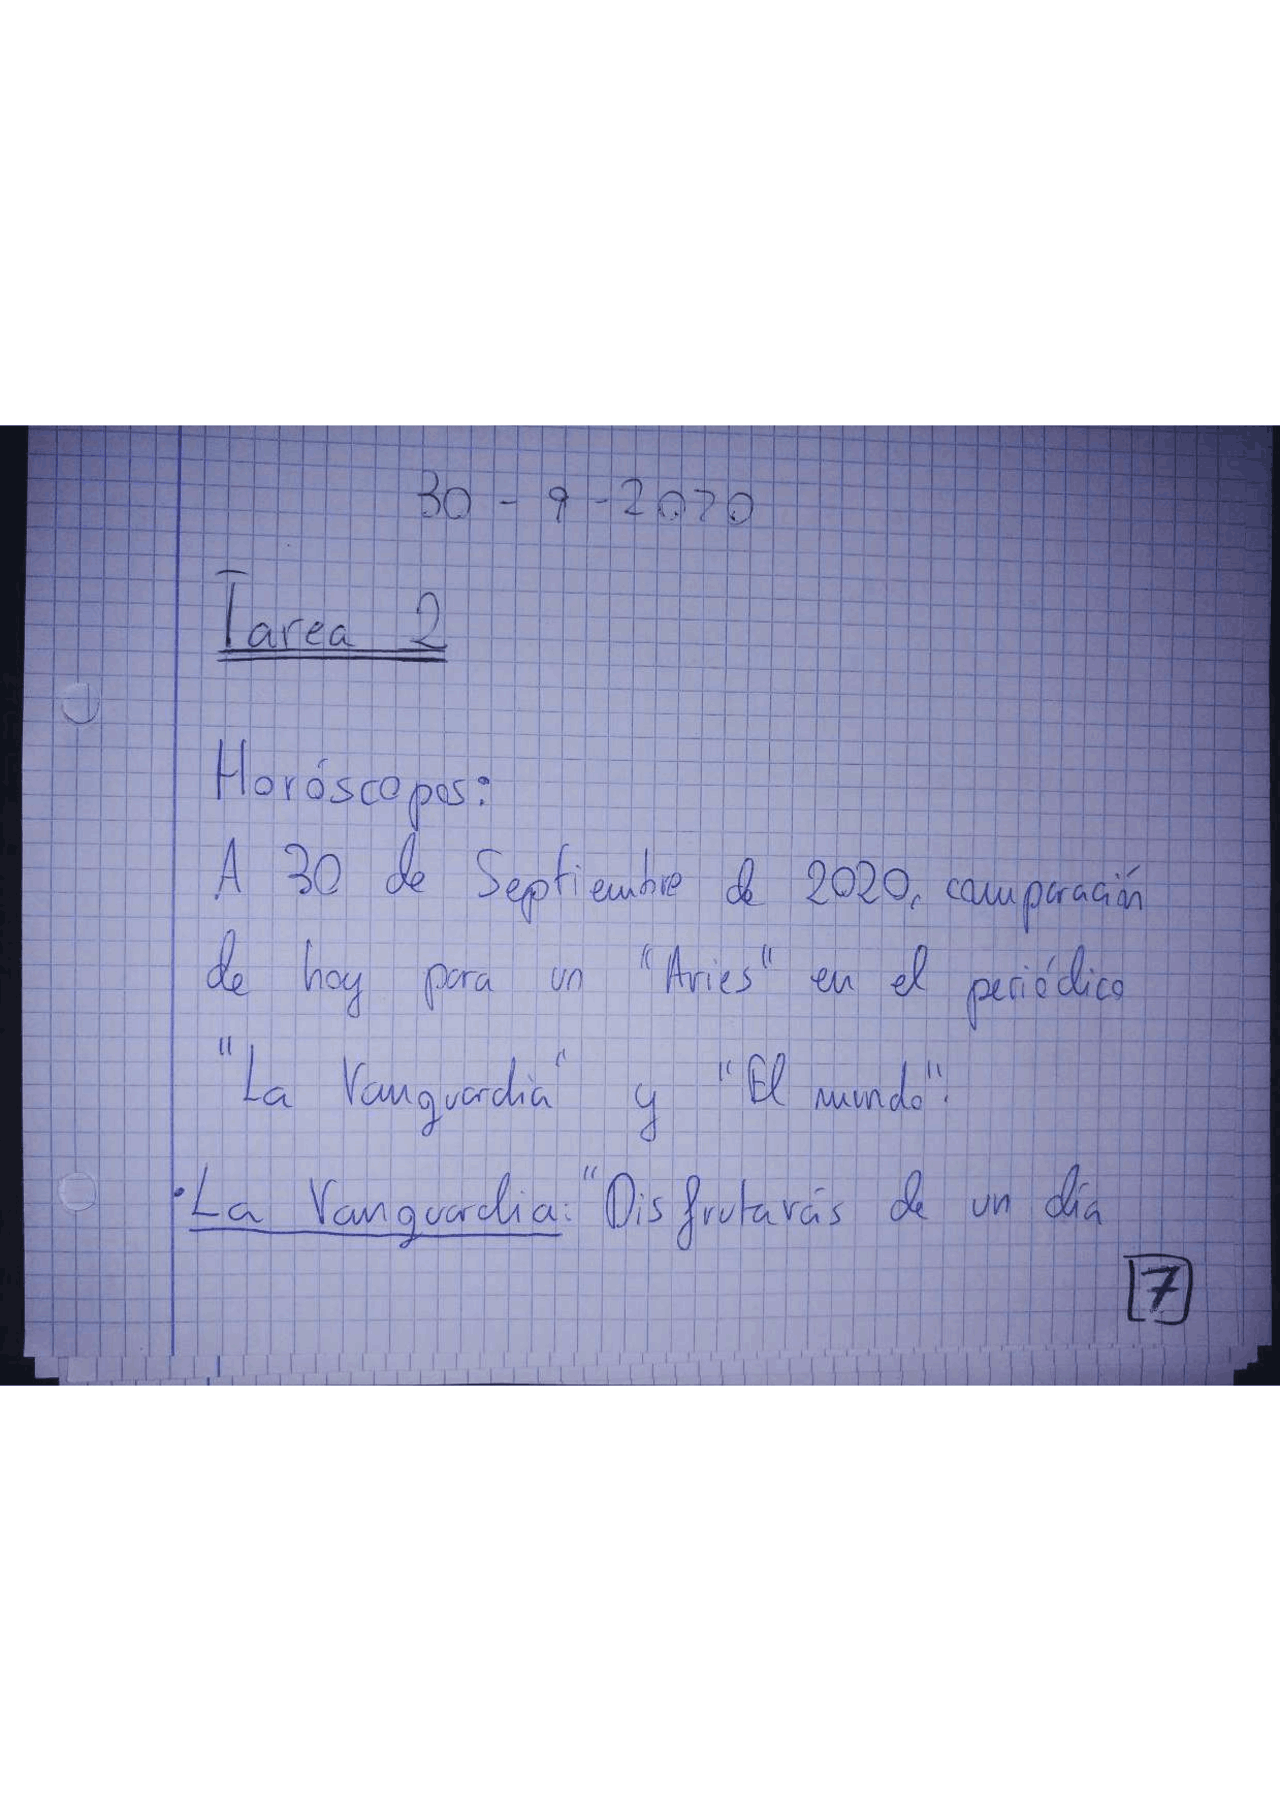 30 - 9 - 2020
Tarea 2
Horóscopos:
A 30 de Septiembre de 2020, comparación
de hoy para un "Aries" en el periódico
"La Vanguardia" y "El mundo":
· La Vanguardia: "Disfrutarás de un día
7